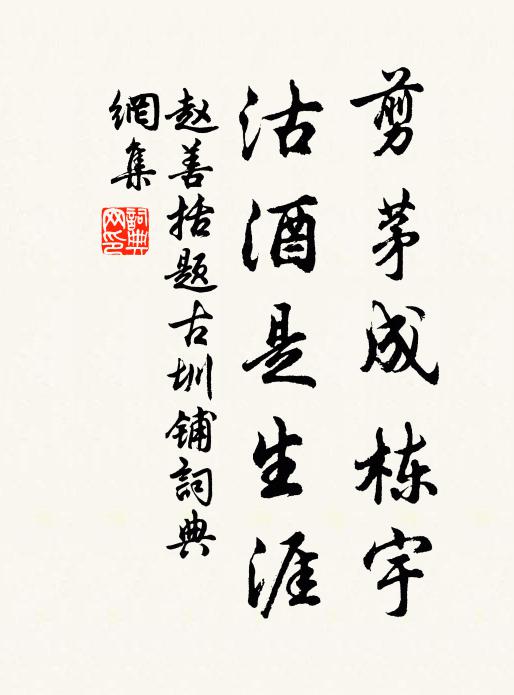 剪茅成栋宇
沽酒是生涯
赵善括题古圳铺詞典
網集
詞典網印